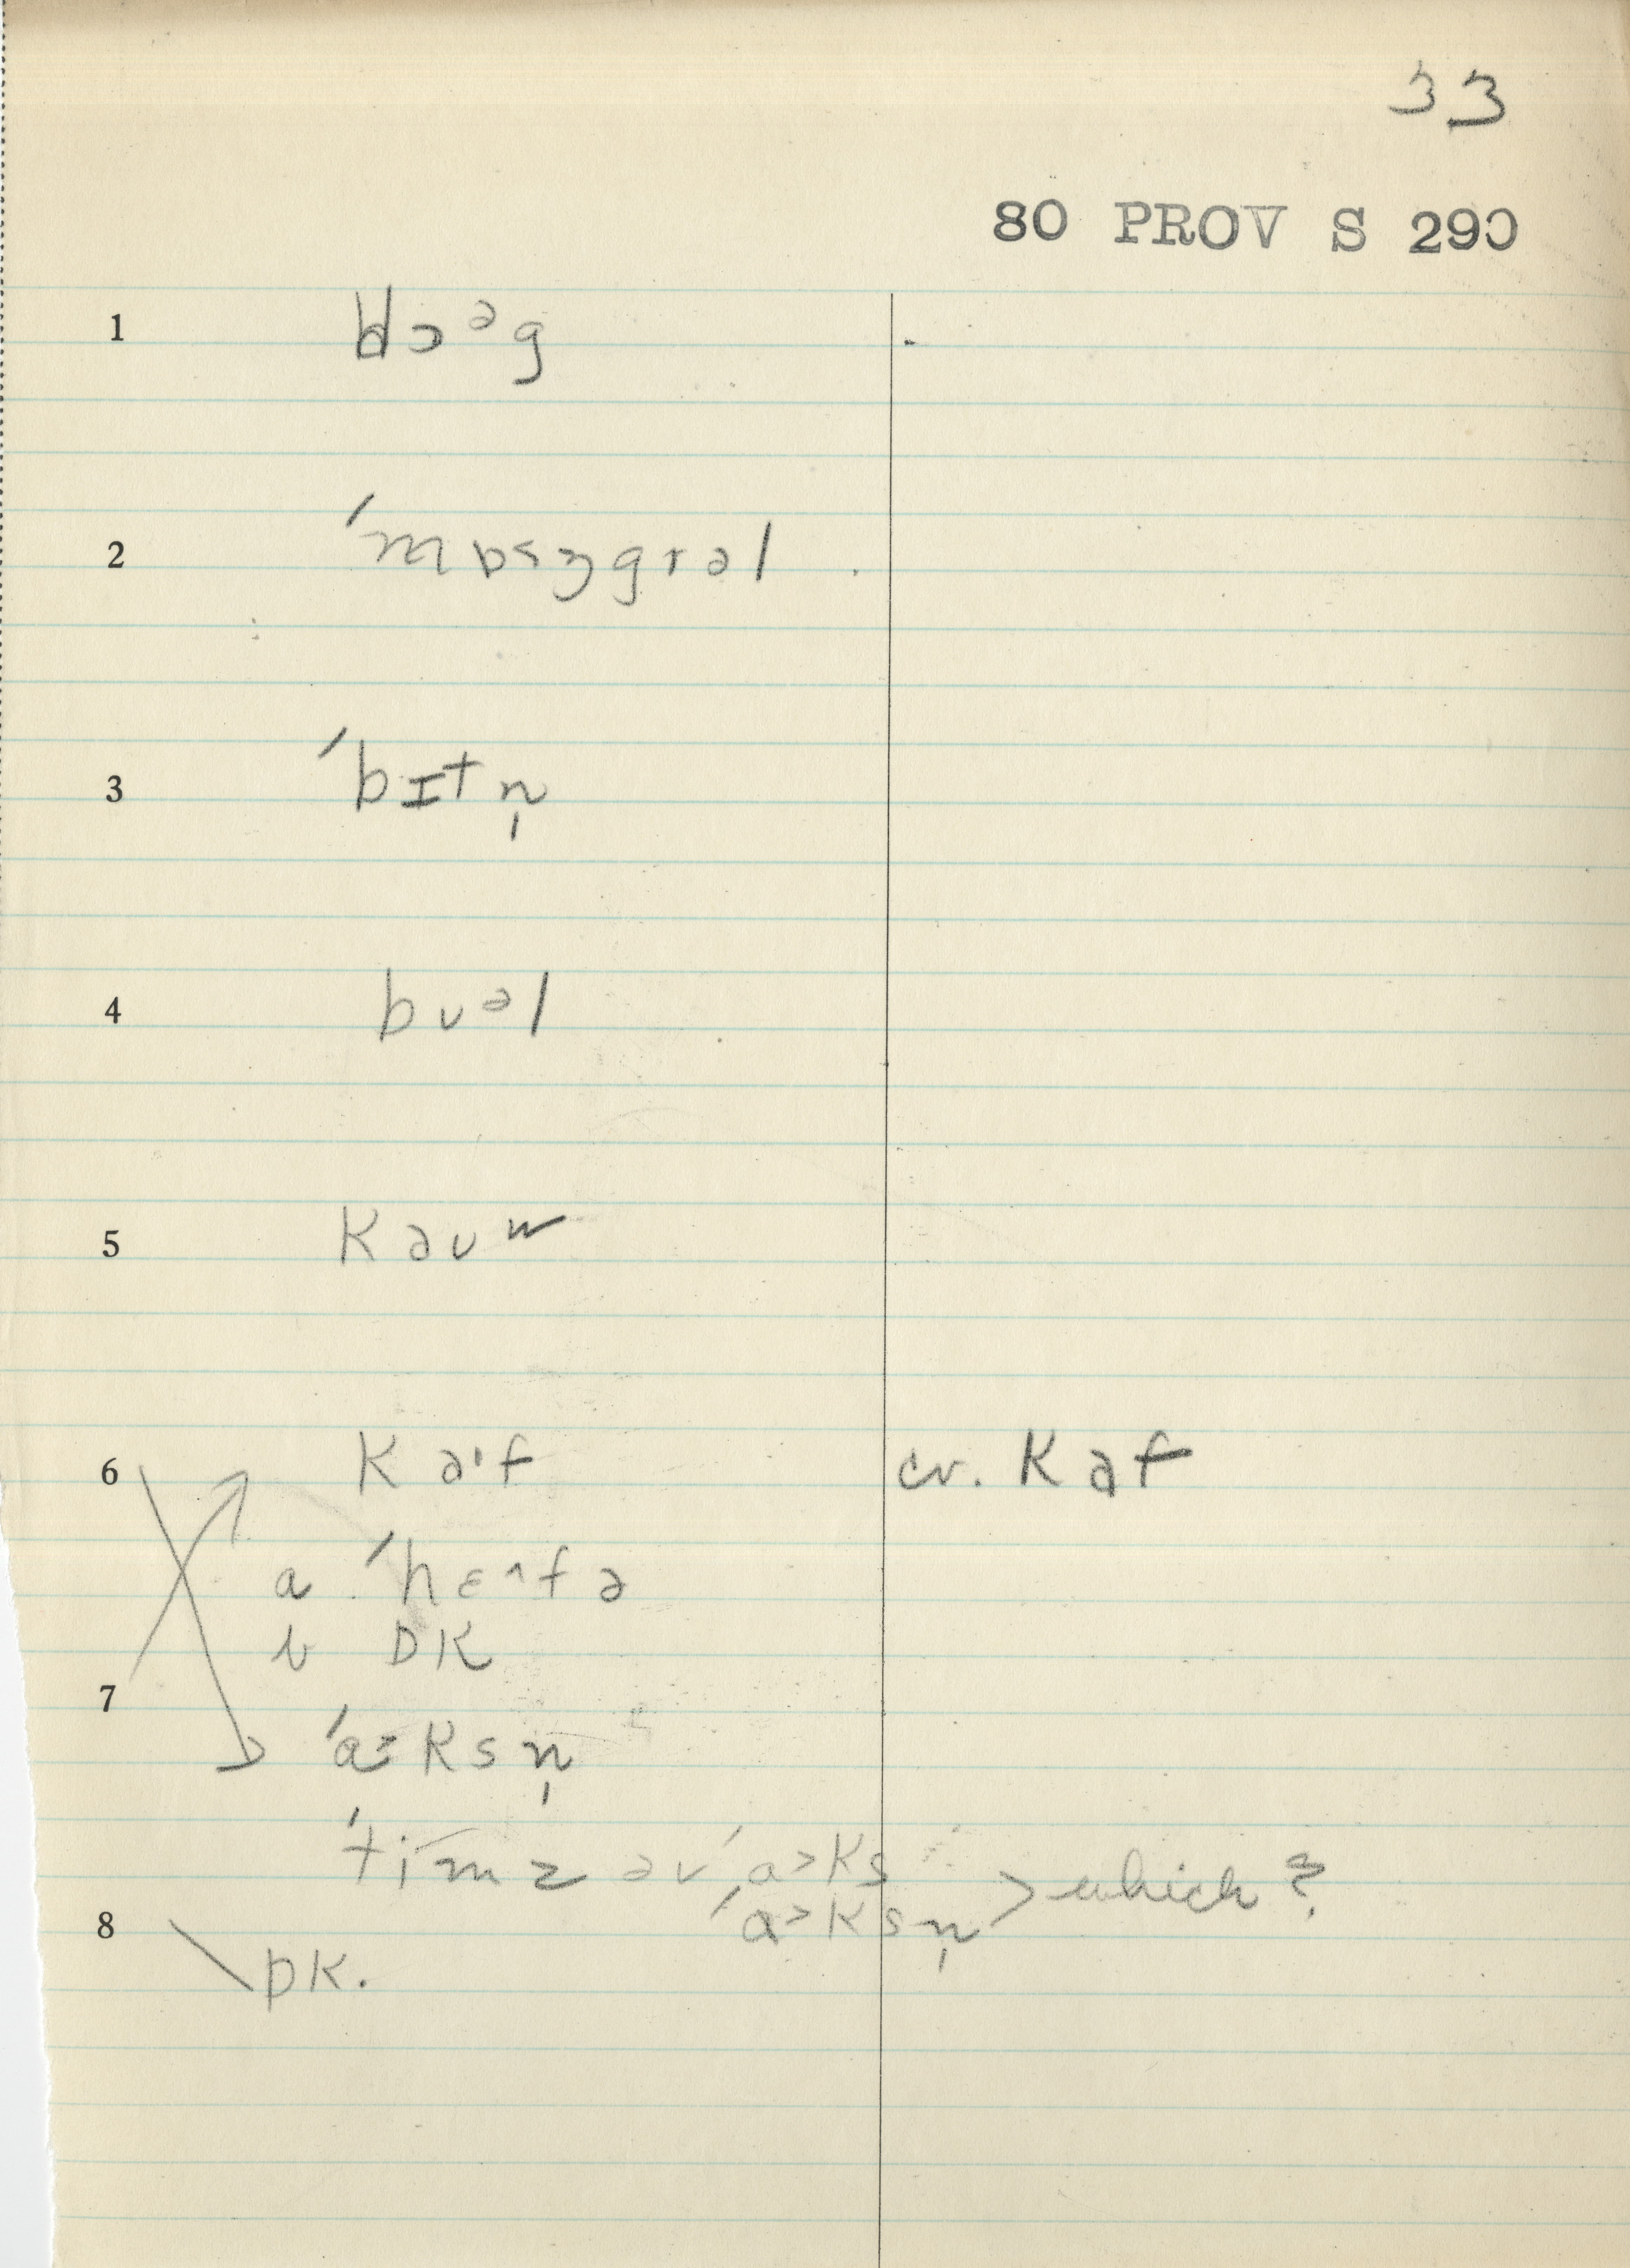 33
80 PROV S 290
1 dɔᵊg
2 ′mɒ˂ŋgrəl
3 ′bɪtn̩
4 bʊᵊl
5 kaʊw
6 ka'f cv. kaf
a ′hɛ^fə
b DK
7
′a˃ksn̩
′timz əv ′a˃ks
′a˃ksn̩ > which?
8 DK.